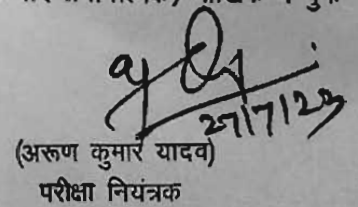 27/7/23
(अरूण कुमार यादव)
परीक्षा नियंत्रक